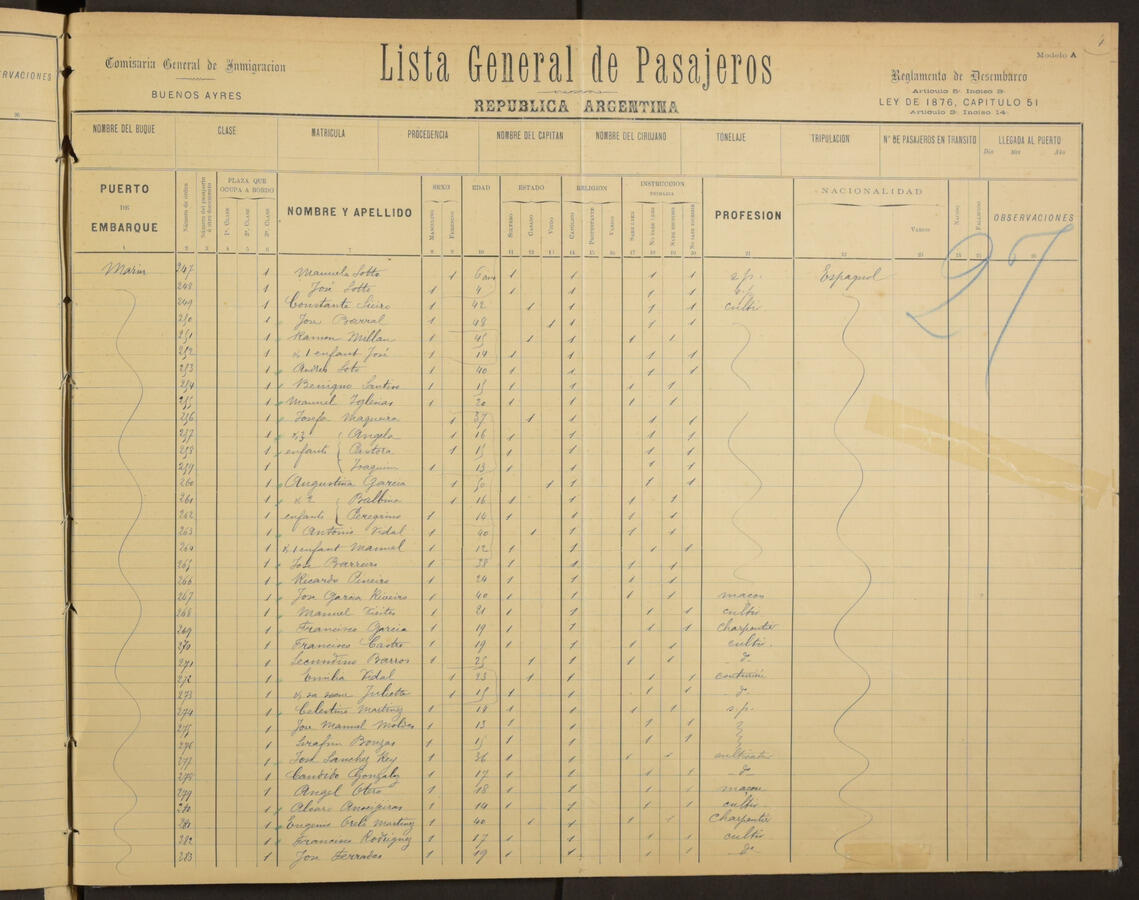 RVACIONES
26
Comisaria General de Inmigracion
BUENOS AYRES
Lista General de Pasajeros
REPUBLICA ARGENTINA
Modelo A
Reglamento de Desembarco
Articulo 5º Inciso 3º
LEY DE 1876, CAPITULO 51
Articulo 3º Inciso 14º
NOMBRE DEL BUQUE CLASE MATRICULA PROCEDENCIA NOMBRE DEL CAPITAN NOMBRE DEL CIRUJANO TONELAJE TRIPULACION Nº DE PASAJEROS EN TRANSITO LLEGADA AL PUERTO
Dia Mes Año
PUERTO DE EMBARQUE Número de órden Número del pasaporte PLAZA QUE OCUPA A BORDO 1ª CLASE 2ª CLASE 3ª CLASE NOMBRE Y APELLIDO SEXO MASCULINO FEMENINO EDAD ESTADO SOLTERO CASADO VIUDO RELIGION CATOLICO PROTESTANTE VARIOS INSTRUCCION PRIMARIA SABE LEER NO SABE LEER SABE ESCRIBIR NO SABE ESCRIBIR PROFESION NACIONALIDAD VARIOS NACIDO FALLECIDO OBSERVACIONES
1 2 3 4 5 6 7 8 9 10 11 12 13 14 15 16 17 18 19 20 21 22 23 24 25 26
27
Marin 247 1 Manuela Sotto 1 6 ans 1 1 1 1 s.p. Espagnol
248 1 José Sotto 1 4 1 1 1 1
249 1 Constante Sieiro 1 42 1 1 1 1 cultiv
250 1 Jose Barral 1 48 1 1 1 1
251 1 Ramon Millan 1 45 1 1 1 1
252 1 & 1 enfant José 1 14 1 1 1 1
253 1 Andres Soto 1 40 1 1 1 1
254 1 Benigno Santos 1 15 1 1 1 1
255 1 Manuel Iglesias 1 20 1 1 1 1
256 1 Josefa Maqueira 1 37 1 1 1 1
257 1 & 3 Angela 1 16 1 1 1 1
258 1 enfants Pastora 1 15 1 1 1
259 1 Joaquin 1 13 1 1 1 1
260 1 Augustina Garcia 1 50 1 1
261 1 & 2 Balbina 1 16 1 1 1 1
262 1 enfants Peregrino 1 14 1 1 1 1
263 1 Antonio Vidal 1 40 1 1 1 1
264 1 & 1 enfant Manuel 1 12 1 1 1 1
265 1 José Barreiro 1 38 1 1 1 1
266 1 Ricardo Pineiro 1 24 1 1 1 1
267 1 Jose Garcia Riveiro 1 40 1 1 1 1 maçon
268 1 Manuel Vieites 1 21 1 1 1 1 cultiv
269 1 Francisco Garcia 1 19 1 1 1 1 charpentier
270 1 Francisco Castro 1 19 1 1 1 1 cultiv.
271 1 Secundino Barros 1 25 1 1 1 1 dº
272 1 Vidal 1 23 1 1 1 1 couturière
273 1 & sa soeur Julietta 1 15 1 1 1 1 dº
274 1 Celestino Martinez 1 18 1 1 1 1 s.p.
275 1 Jose Manuel Moldes 1 13 1 1 1 1
276 1 Serafin Bouzas 1 15 1 1 1 1
277 1 José Sanchez Rey 1 36 1 1 1 1 cultivateur
278 1 Candido Gonzalez 1 17 1 1 1 1 dº
279 1 Angel Otero 1 18 1 1 1 1 maçon
280 1 Alvaro 1 14 1 1 1 1 cultiv
281 1 Eugenio Martinez 1 40 1 1 1 1 charpentier
282 1 Francisco Rodriguez 1 17 1 1 1 1 cultiv
283 1 Jose Ferradas 1 19 1 1 1 1 dº